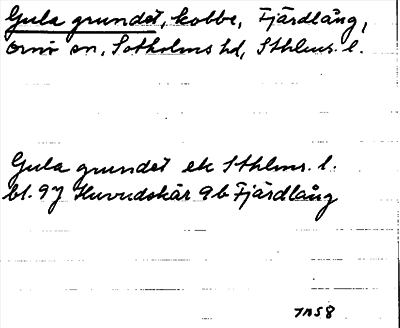 Gula grundet, kobbe, Fjärdlång,
Ornö sn, Sotholms hd, Sthlms l.
Gula grundet ek Sthlms l.
bl. 9J Huvudskär 9b Fjärdlång
1958